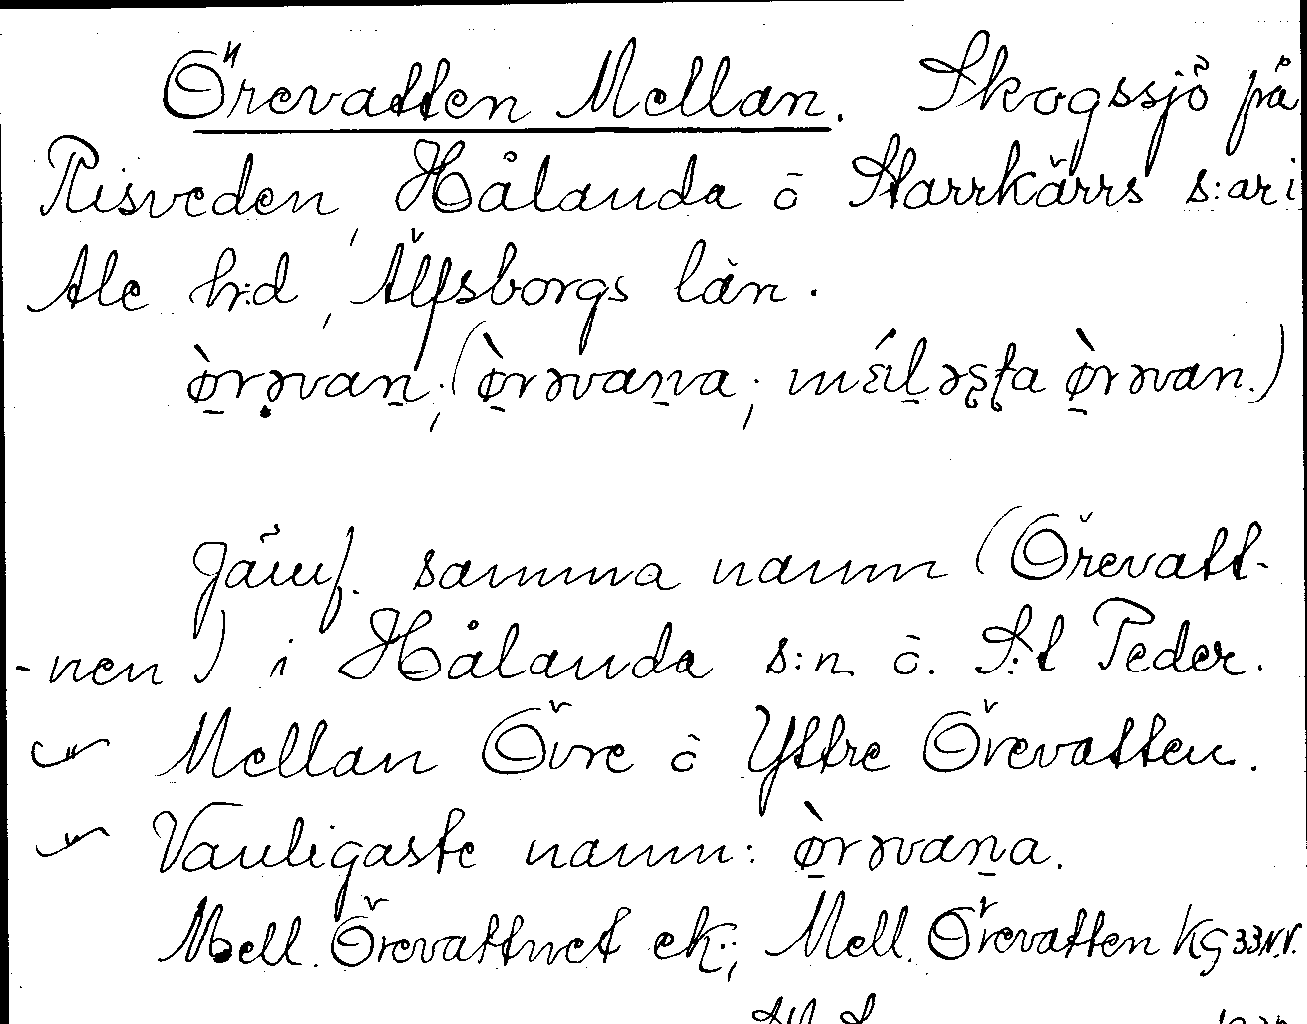 Örevatten Mellan. Skogssjö på
Risveden, Hålanda o Starrkärrs s:ar i
Ale h:d, Älfsborgs län.
ø̀rəvan; (ø̀rəvana; mɛ́ləʂʈa ø̀rəvan.)
Jämf. samma namn (Örevatt-
-nen) i Hålanda s:n o. S:t Peder.
Mellan Övre o Yttre Örevatten.
Vanligaste namn: ø̀rəvana.
Mell. Örevattnet ek.; Mell. Örevatten KG 33 N.V.